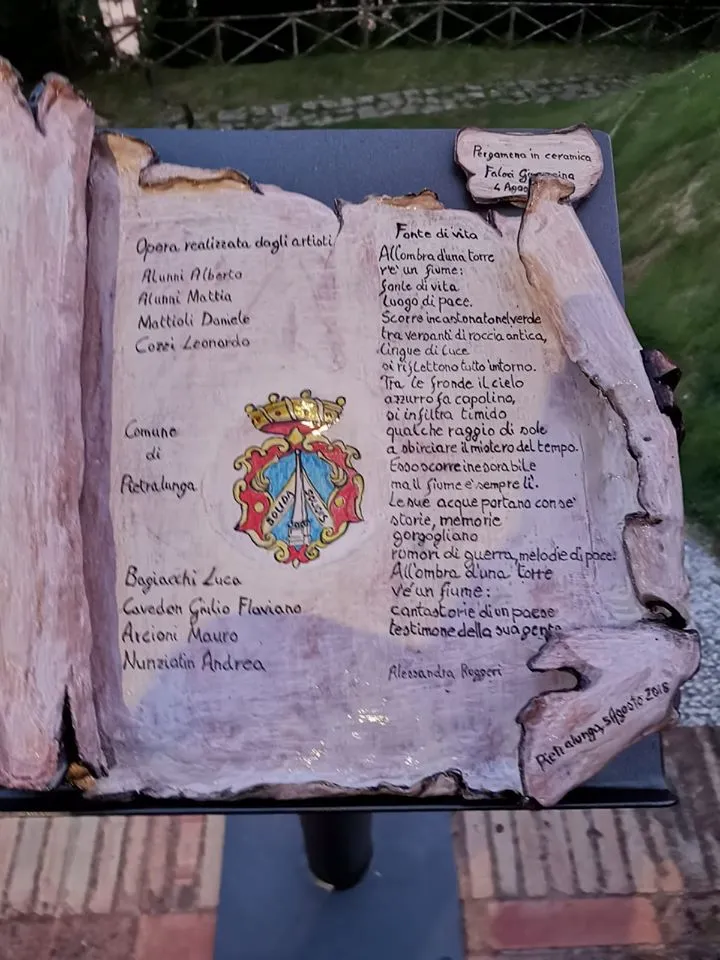 Pergamena in ceramica
Faloci
4
Opera realizzata dagli artisti
Alunni Alberto
Alunni Mattia
Mattioli Daniele
Cozzi Leonardo
Comune
di
Pietralunga
SOLIDA
Bagiacchi Luca
Cavedon Giulio Flaviano
Arcioni Mauro
Nunziatin Andrea
Fonte di vita
All'ombra d'una torre
v'e' un fiume:
fonte di vita
luogo di pace.
Scorre incastonato nel verde
tra versanti di roccia antica,
lingue di luce
si riflettono tutto intorno.
Tra le fronde il cielo
azzurro fa capolino,
si infiltra timido
qualche raggio di sole
a sbirciare il mistero del tempo.
Esso scorre inesorabile
ma il fiume e' sempre lì.
Le sue acque portano con se'
storie, memorie
gorgogliano
rumori di guerra, melodie di pace.
All'ombra d'una torre
v'e' un fiume:
cantastorie di un paese
testimone della sua gente
Alessandra Roggeri
Pietralunga, 5 Agosto 2018